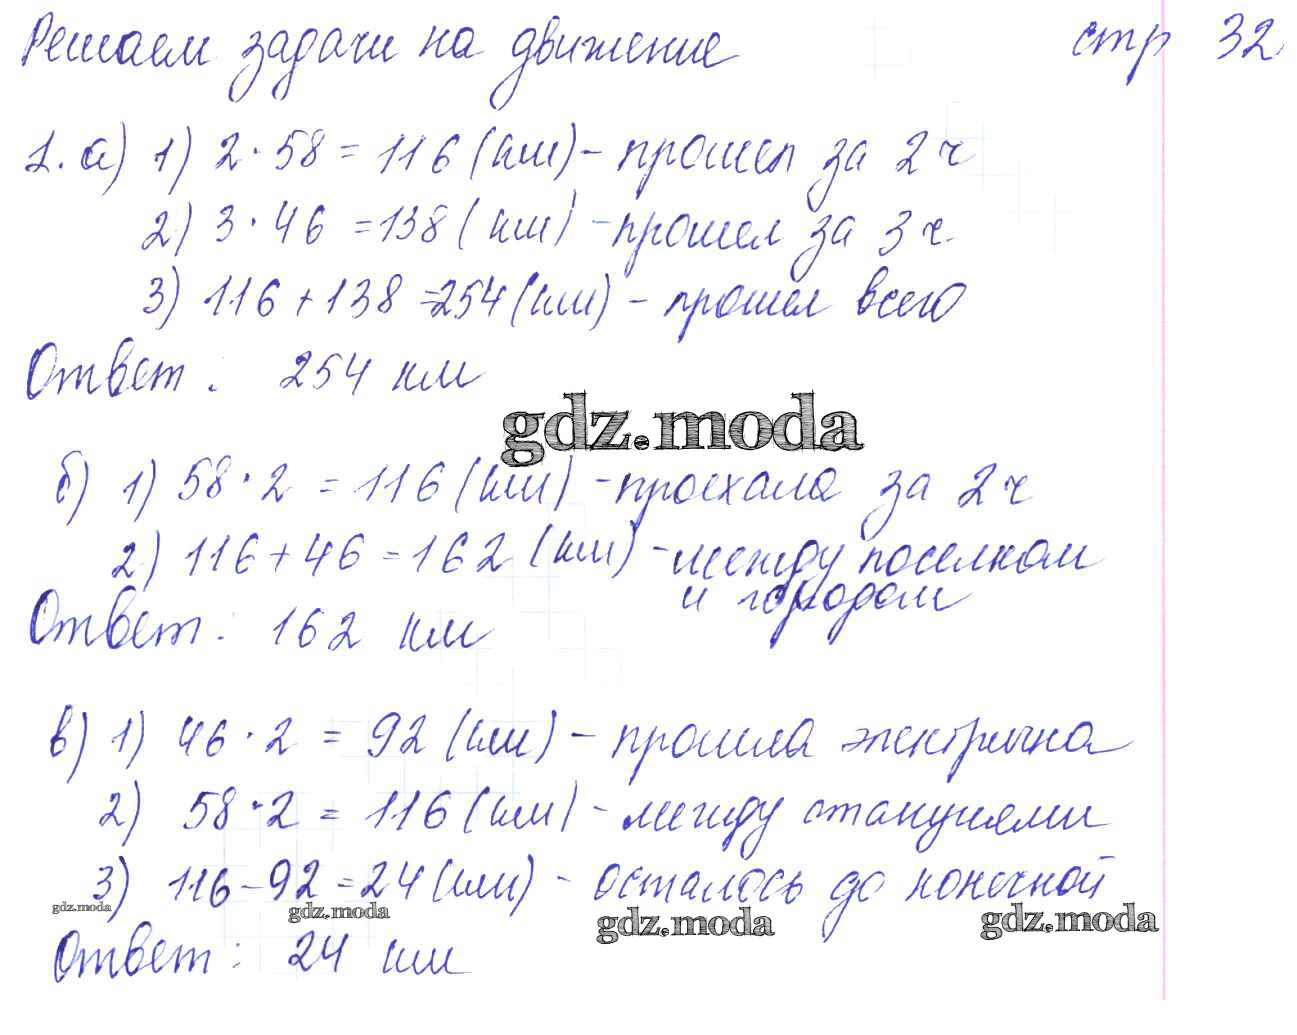 Решаем задачи на движение стр 32
1. а) 1) 2 · 58 = 116 (км) - прошел за 2 ч
2) 3 · 46 = 138 (км) - прошел за 3 ч.
3) 116 + 138 = 254 (км) - прошел всего
Ответ: 254 км
gdz.moda
б) 1) 58 · 2 = 116 (км) - проехала за 2 ч
2) 116 + 46 = 162 (км) - между поселком
и городом
Ответ: 162 км
в) 1) 46 · 2 = 92 (км) - прошла электричка
2) 58 · 2 = 116 (км) - между станциями
3) 116 - 92 = 24 (км) - осталось до конечной
gdz.moda gdz.moda gdz.moda gdz.moda
Ответ: 24 км